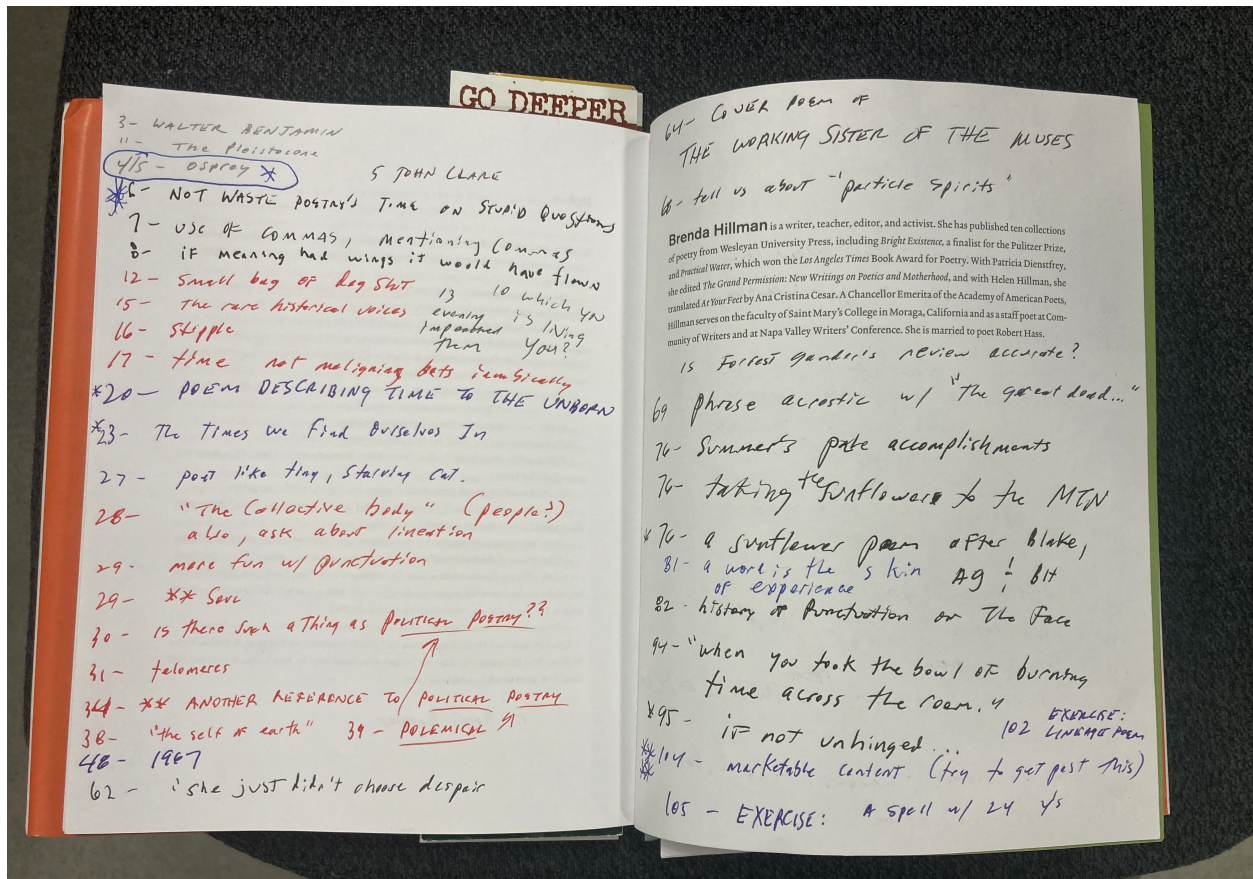 GO DEEPER
3- WALTER BENJAMIN
"- The Pleistocene
4/5 - OSPREY *
5 JOHN CLARE
*6- NOT WASTE POETRY'S TIME ON STUPID QUESTIONS
7- USE OF COMMAS, mentioning Commas
8- if meaning had wings it would have flown
12- Small bag of dog shit
13 evening impeached them
10 which YOU is living You?
15- The rare historical voices
16- Stipple
17- time not maligning bats iambically
*20- POEM DESCRIBING TIME TO THE UNBORN
*23- The Times We Find Ourselves In
27- poet like tiny, starving cat.
28- "The Collective body" (people?)
also, ask about lineation
29- more fun w/ punctuation
29- ** Soul
30- is there such a Thing as POLITICAL POETRY??
31- telomeres
34- ** ANOTHER REFERENCE TO POLITICAL POETRY
38- "the self of earth" 39- POLEMICAL
48- 1967
62- she just didn't choose despair
64- COVER POEM OF
THE WORKING SISTER OF THE MUSES
tell us about "particle spirits"
Brenda Hillman is a writer, teacher, editor, and activist. She has published ten collections
of poetry from Wesleyan University Press, including Bright Existence, a finalist for the Pulitzer Prize,
and Practical Water, which won the Los Angeles Times Book Award for Poetry. With Patricia Dienstfrey,
she edited The Grand Permission: New Writings on Poetics and Motherhood, and with Helen Hillman, she
translated At Your Feet by Ana Cristina Cesar. A Chancellor Emerita of the Academy of American Poets,
Hillman serves on the faculty of Saint Mary's College in Moraga, California and as a staff poet at Com-
munity of Writers and at Napa Valley Writers' Conference. She is married to poet Robert Hass.
is Forrest Gander's review accurate?
69 phrase acrostic w/ "The great dead..."
76- Summer's pale accomplishments
76- taking the sunflowers to the MTN
*76- a sunflower poem after Blake,
AG & BH
81- a word is the skin
of experience
82- history of Punctuation on The Face
94- "when you took the bowl of burning
time across the room."
*95- if not unhinged...
102 EXERCISE:
LINEAGE POEM
**104- marketable content (try to get past this)
105 - EXERCISE: A spell w/ 24 y/s